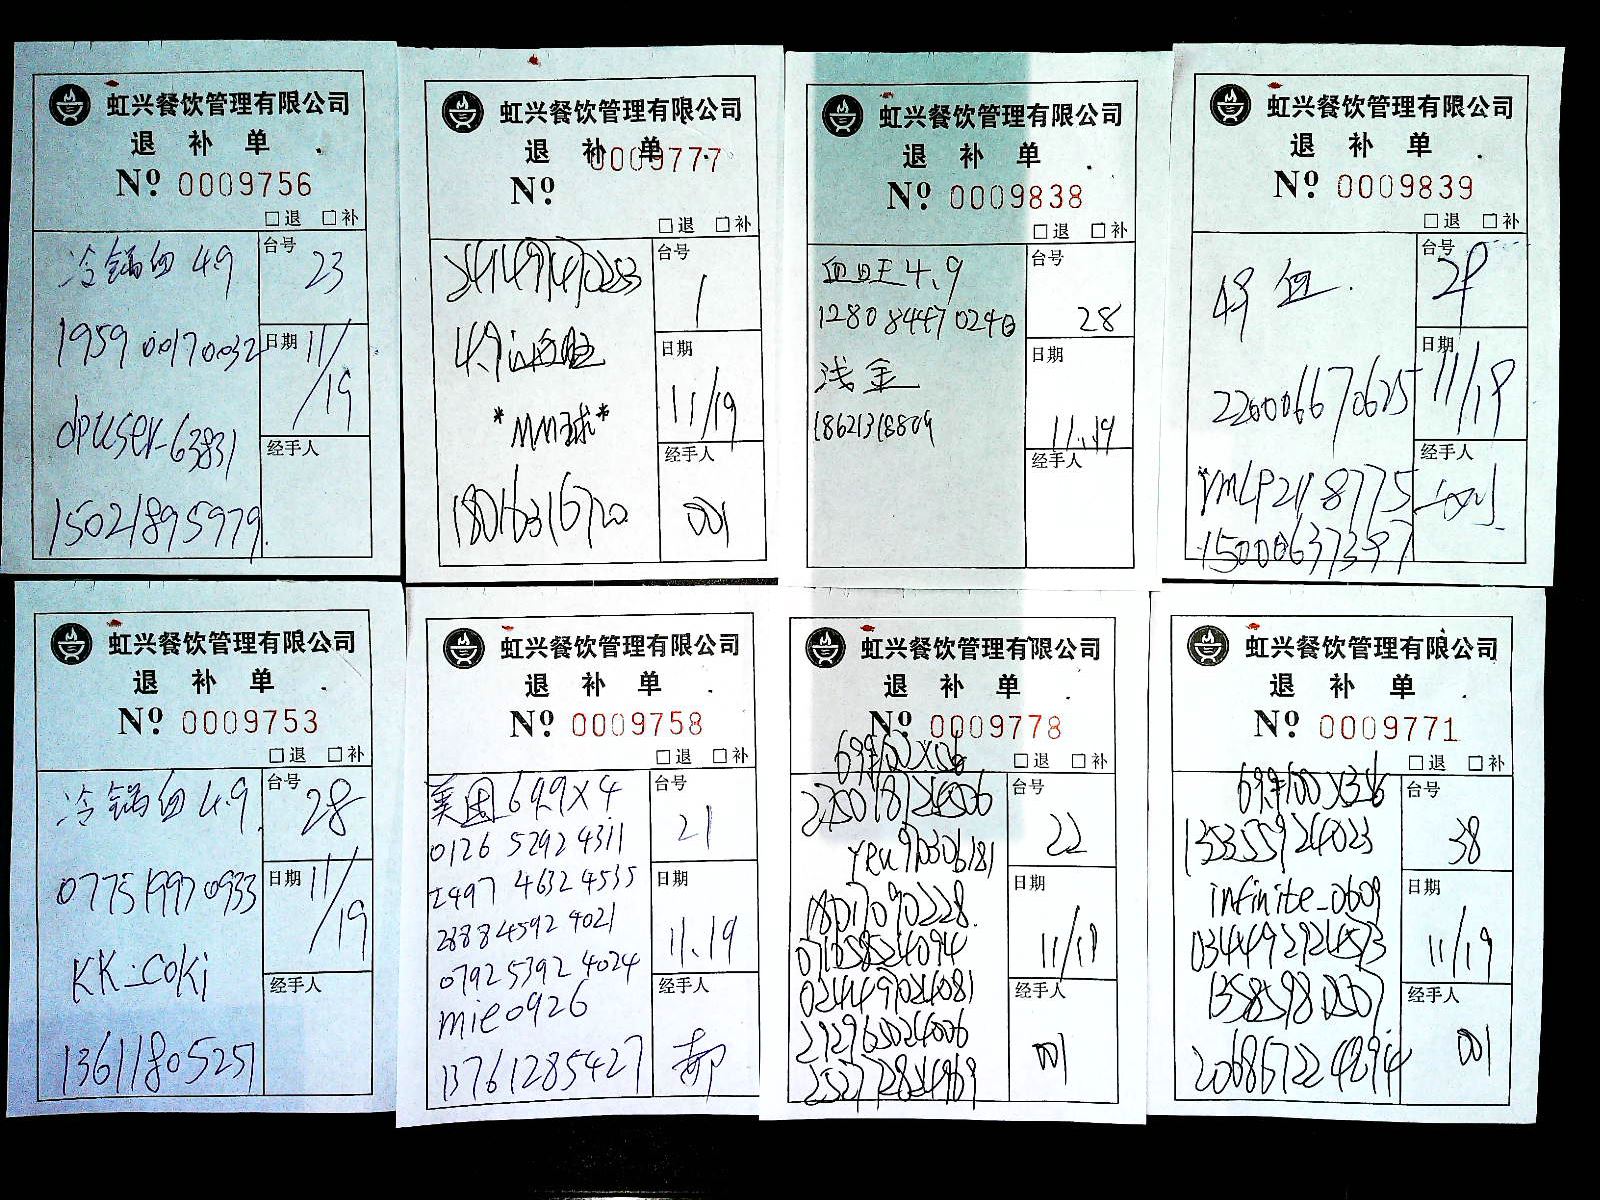 虹兴餐饮管理有限公司
退 补 单
№ 0009756
□退 □补
冷锅血 4.9
台号
23
1959 00170032
日期
11/19
dpuser-63831
经手人
15021895979
虹兴餐饮管理有限公司
退 补 单
№ 0009777
□退 □补
台号
1
4.9
日期
11/19
*MM球*
经手人
18016316720
001
虹兴餐饮管理有限公司
退 补 单
№ 0009838
□退 □补
血旺 4.9
台号
28
12808447024
日期
浅金
11.19
18621318809
经手人
虹兴餐饮管理有限公司
退 补 单
№ 0009839
□退 □补
血
台号
日期
220006670625
11/19
经手人
15000637397
虹兴餐饮管理有限公司
退 补 单
№ 0009753
□退 □补
冷锅血 4.9
台号
28
077519970933
日期
11/19
KK-coki
经手人
13611805251
虹兴餐饮管理有限公司
退 补 单
№ 0009758
□退 □补
美团 69.9×4
台号
21
0126 5292 4311
2497 4632 4535
日期
2888 4592 4021
11.19
0792 5392 4024
经手人
mie0926
13761285427
郝
虹兴餐饮管理有限公司
退 补 单
№ 0009778
□退 □补
台号
22
yeu970306181
日期
18017090228
11/19
071258524094
经手人
024449024081
272965024006
001
252772824969
虹兴餐饮管理有限公司
退 补 单
№ 0009771
□退 □补
台号
38
135355924023
日期
infinite_0609
11/19
0344492924573
经手人
13585980507
206867224294
001